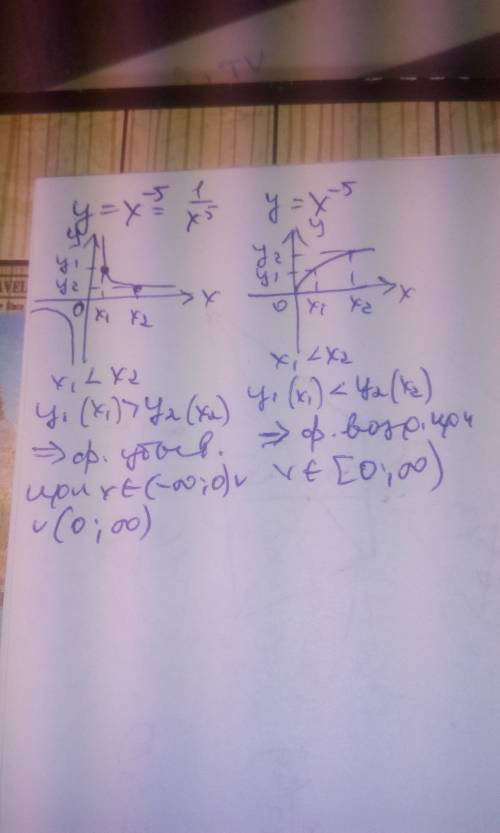 TV
y = x⁻⁵ = 1/x⁵
y
y₁
y₂
0 x₁ x₂ x
x₁ < x₂
y₁(x₁) > y₂(x₂)
⇒ ф. убыв.
при x ∈ (-∞; 0) ∪
∪ (0; ∞)
y = x⁻⁵
y
y₂
y₁
0 x₁ x₂ x
x₁ < x₂
y₁(x₁) < y₂(x₂)
⇒ ф. возр. при
x ∈ [0; ∞)